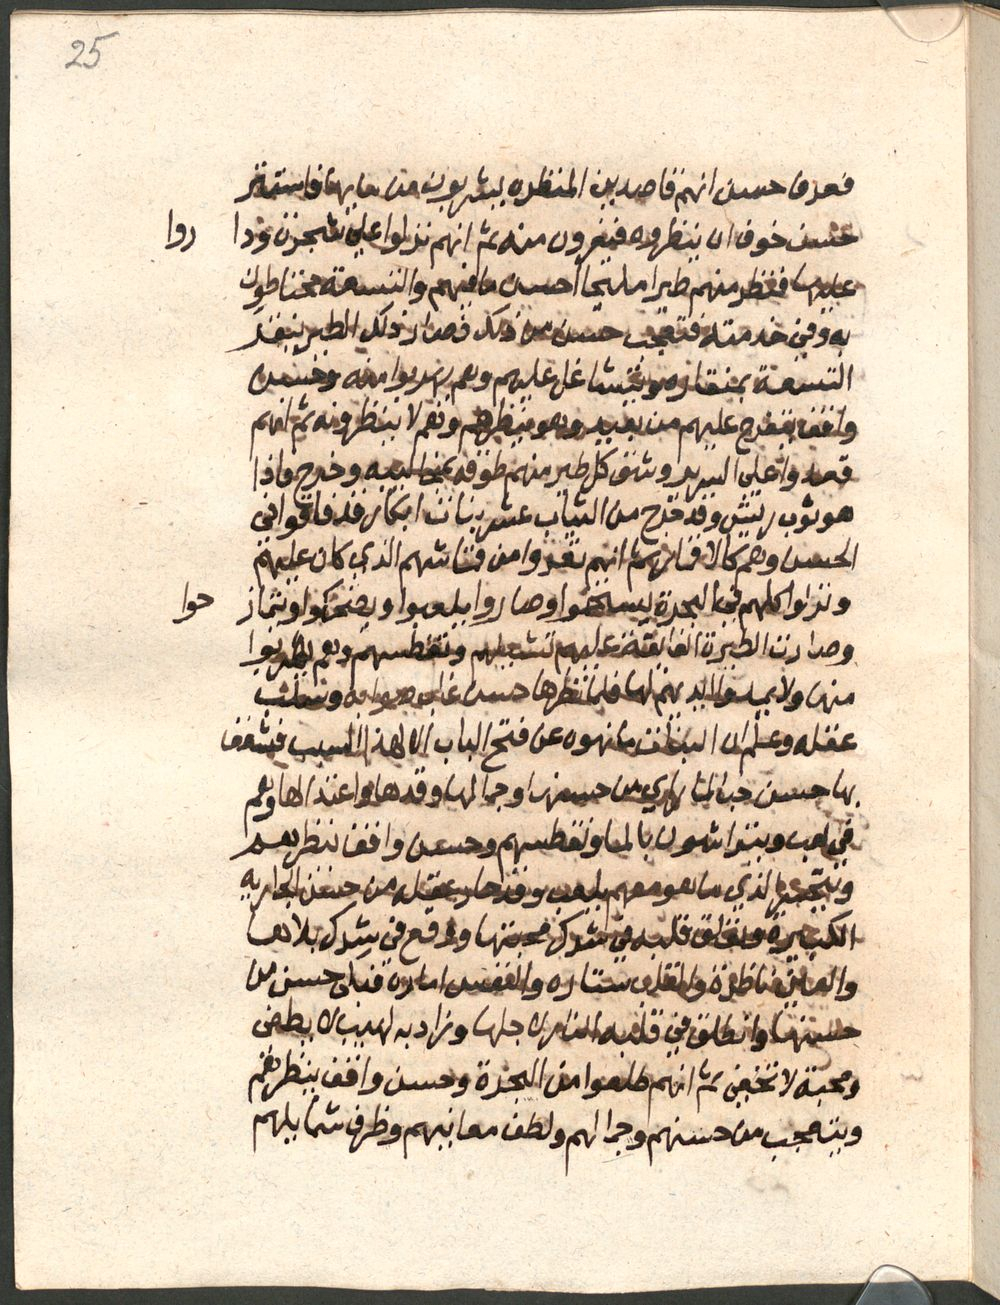 25
فعرف حسن انهم قاصدين المنظره ليشربون من مايها فاستتر
حسن خوف ان ينظروه فيفرون منه ثم انهم نزلوا علي شجره ودا
روا
عليها فنظر منهم طيرا مليحا احسن ما فيهم والتسعة محتاطون
به وفي خدمته فتعجب حسن من ذلك فصار ذلك الطير ينقر
التسعة بمنقاره ويتشاغل عليهم وهم يهربوا منه وحسن
واقف يتفرج عليهم من بعيد وهو ينظرهم وهم لا ينظرونه ثم انهم
قعدوا علي السرير وشق كل طير منهم طوقه بمخاليبه وخرج واذا
هو ثوب ريش وقد خرج من الثياب عشر بنات ابكار قد فاقوا في
الحسن وهم كالاقمار ثم انهم تعروا من قماشهم الذي كان عليهم
ونزلوا كلهم في البحرة يستحموا وصاروا يلعبوا ويضحكوا ويتماز
حوا
وصارت الطيرة الفايقة عليهم تشيلهم وتغطسهم وهم يهربوا
منها ولا يمدوا ايديهم لها فلما نظرها حسن غاب صوابه وسلبت
عقله وعلم ان البنات ما نهوه عن فتح الباب الا لهذا السبب فشغف
بها حسن حبا لما راي من حسنها وجمالها وقدها واعتدالها وهم
في لعب ويتراشون بالما وتغطسهم وحسن واقف ينظرهم
ويتحسر الذي ما هو معهم يلعب وقد حار عقله من حسن الجاريه
الكبيرة وتعلق قلبه في شرك محبتها ووقع في شرك بلاها
والعين ناظرة والقلب ستاره والنفس اماره فبكي حسن من
حسنها وانطلق في قلبه النار لاجلها وزاد به لهيب لا يطفى
ومحبة لا تخفي ثم انهم طلعوا من البحرة وحسن واقف ينظرهم
ويتعجب من حسنهم وجمالهم ولطف معانيهم وظرف شمايلهم